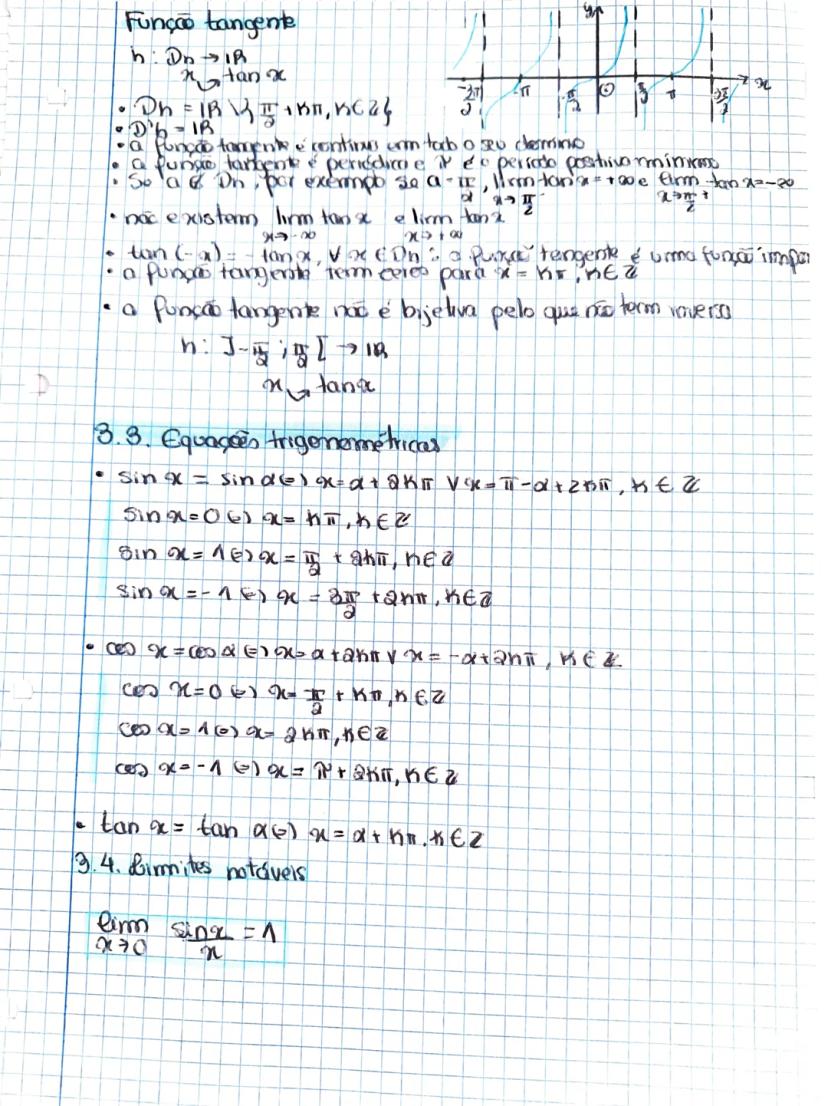 Função tangente
h: Dh → IR
x ↘ tan x
y
-3π/2 -π -π/2 0 π/2 π 3π/2 x
• Dh = IR \ { π/2 + kπ, k ∈ Z }
• D'h = IR
• a função tangente é contínua em todo o seu domínio
• a função tangente é periódica e π é o período positivo mínimo
• Se a ∉ Dh, por exemplo se a = π/2, lim tan x = +∞ e lim tan x = -∞
x→π/2⁻ x→π/2⁺
• não existem lim tan x e lim tan x
x→-∞ x→+∞
• tan(-x) = -tan x, ∀ x ∈ Dh : a função tangente é uma função ímpar
• a função tangente tem zeros para x = kπ, k ∈ Z
• a função tangente não é bijetiva pelo que não tem inversa
h: ]-π/2 ; π/2[ → IR
x ↘ tan x
3.3. Equações trigonométricas
• sin x = sin α (=) x = α + 2kπ ∨ x = π - α + 2kπ, k ∈ Z
sin x = 0 (=) x = kπ, k ∈ Z
sin x = 1 (=) x = π/2 + 2kπ, k ∈ Z
sin x = -1 (=) x = 3π/2 + 2kπ, k ∈ Z
• cos x = cos α (=) x = α + 2kπ ∨ x = -α + 2kπ, k ∈ Z
cos x = 0 (=) x = π/2 + kπ, k ∈ Z
cos x = 1 (=) x = 2kπ, k ∈ Z
cos x = -1 (=) x = π + 2kπ, k ∈ Z
• tan x = tan α (=) x = α + kπ, k ∈ Z
3.4. Limites notáveis
lim sin x/x = 1
x→0